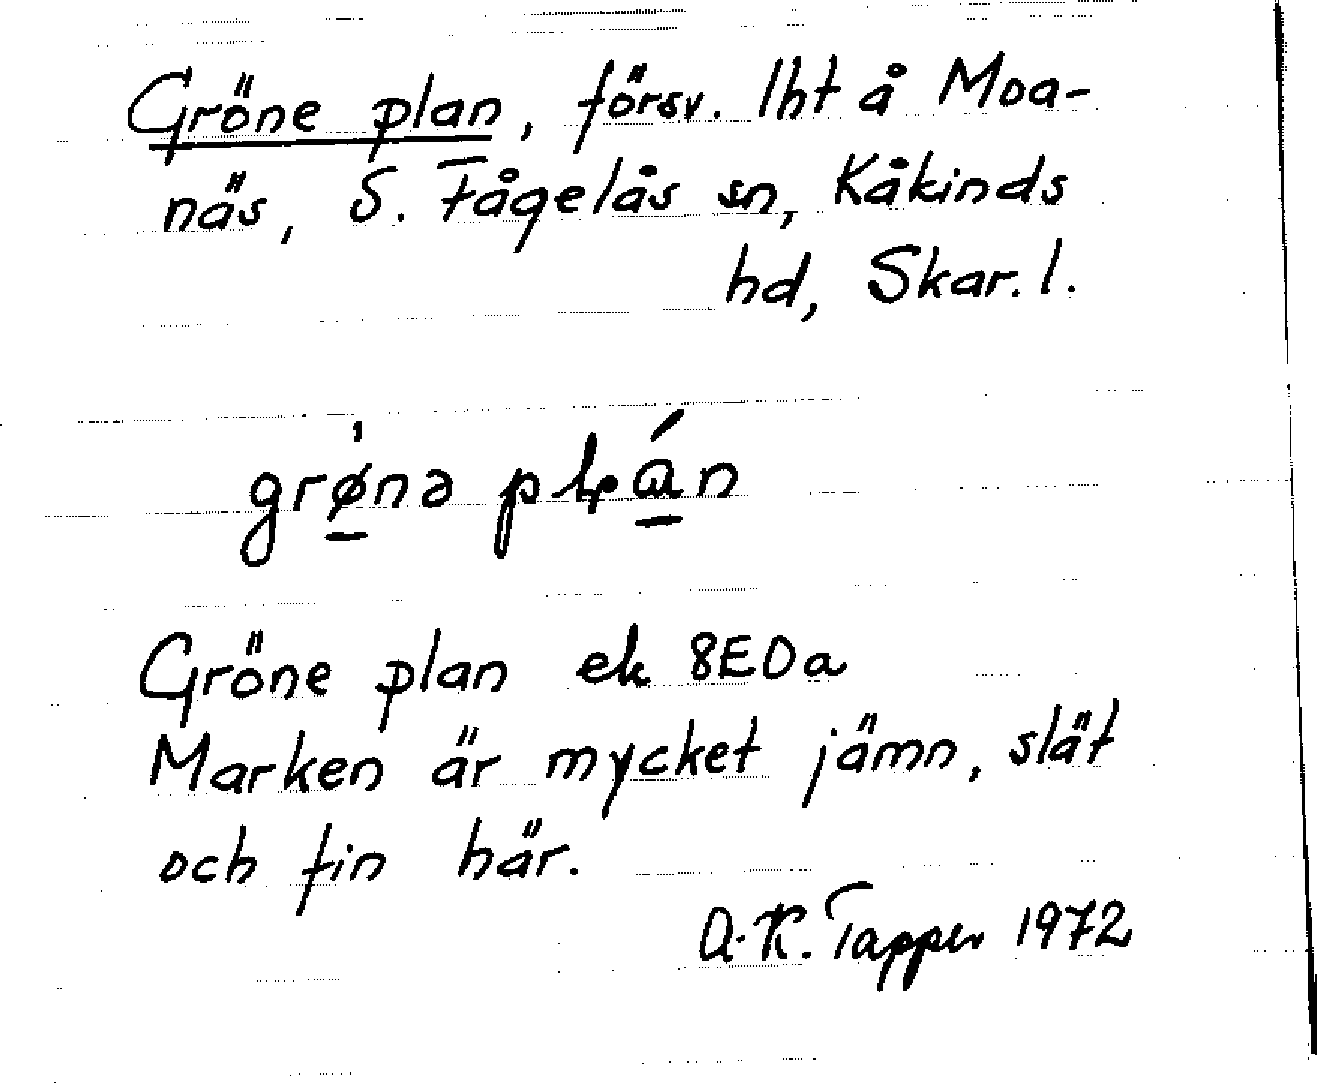 Gröne plan, försv. lht å Moa-
näs, S. Fågelås sn, Kåkinds
hd, Skar. l.
grǿ̱nə pɫá̱n
Gröne plan ek 8E0a
Marken är mycket jämn, slät
och fin här.
A-K. Tapper 1972